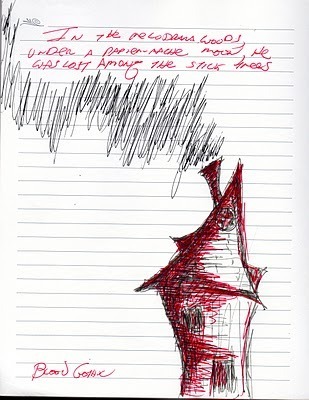 In the melodrama woods,
under a papier-mache moon, he
was lost among the stick trees
Blood Gothic